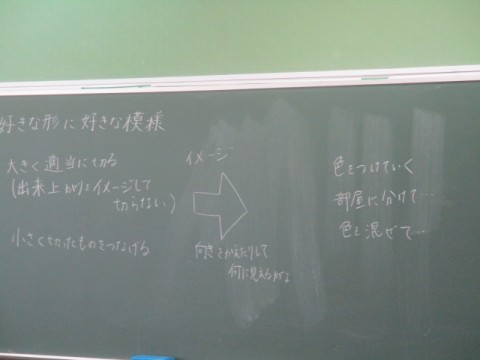 好きな形に好きな模様
大きく適当に切る
(出来上がりイメージして
切らない)
小さく切ったものをつなげる
イメージ
向きをかえたりして
何に見えるかな
色をつけていく
部屋に分けて…
色を混ぜて…